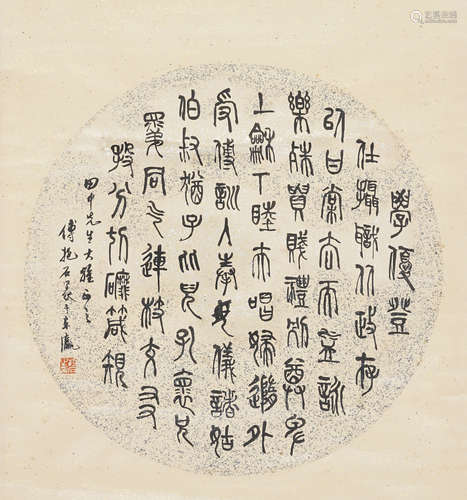 學優登
仕攝職从政存
以甘棠去而益詠
樂殊貴賤禮別尊卑
上龢下睦夫唱婦隨外
受傅訓入奉母儀諸姑
伯叔猶子比兒孔懷兄
弟同气連枝交友
投分切磨箴規
田中先生大雅
傅抱石篆于東瀛